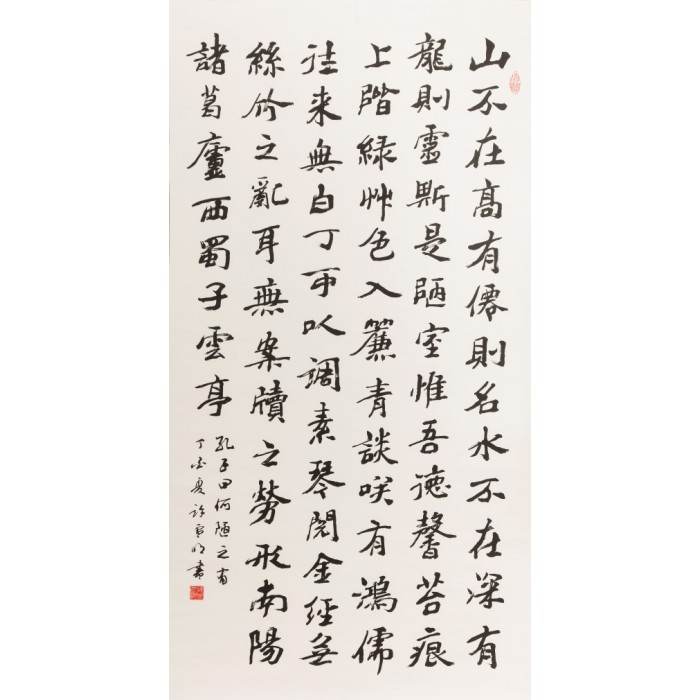 山不在高有僊則名水不在深有
龍則靈斯是陋室惟吾德馨苔痕
上階緑艸色入簾青談咲有鴻儒
往来無白丁可以調素琴閲金經無
絲竹之亂耳無案牘之勞形南陽
諸葛廬西蜀子雲亭
孔子曰何陋之有
丁酉夏許
書